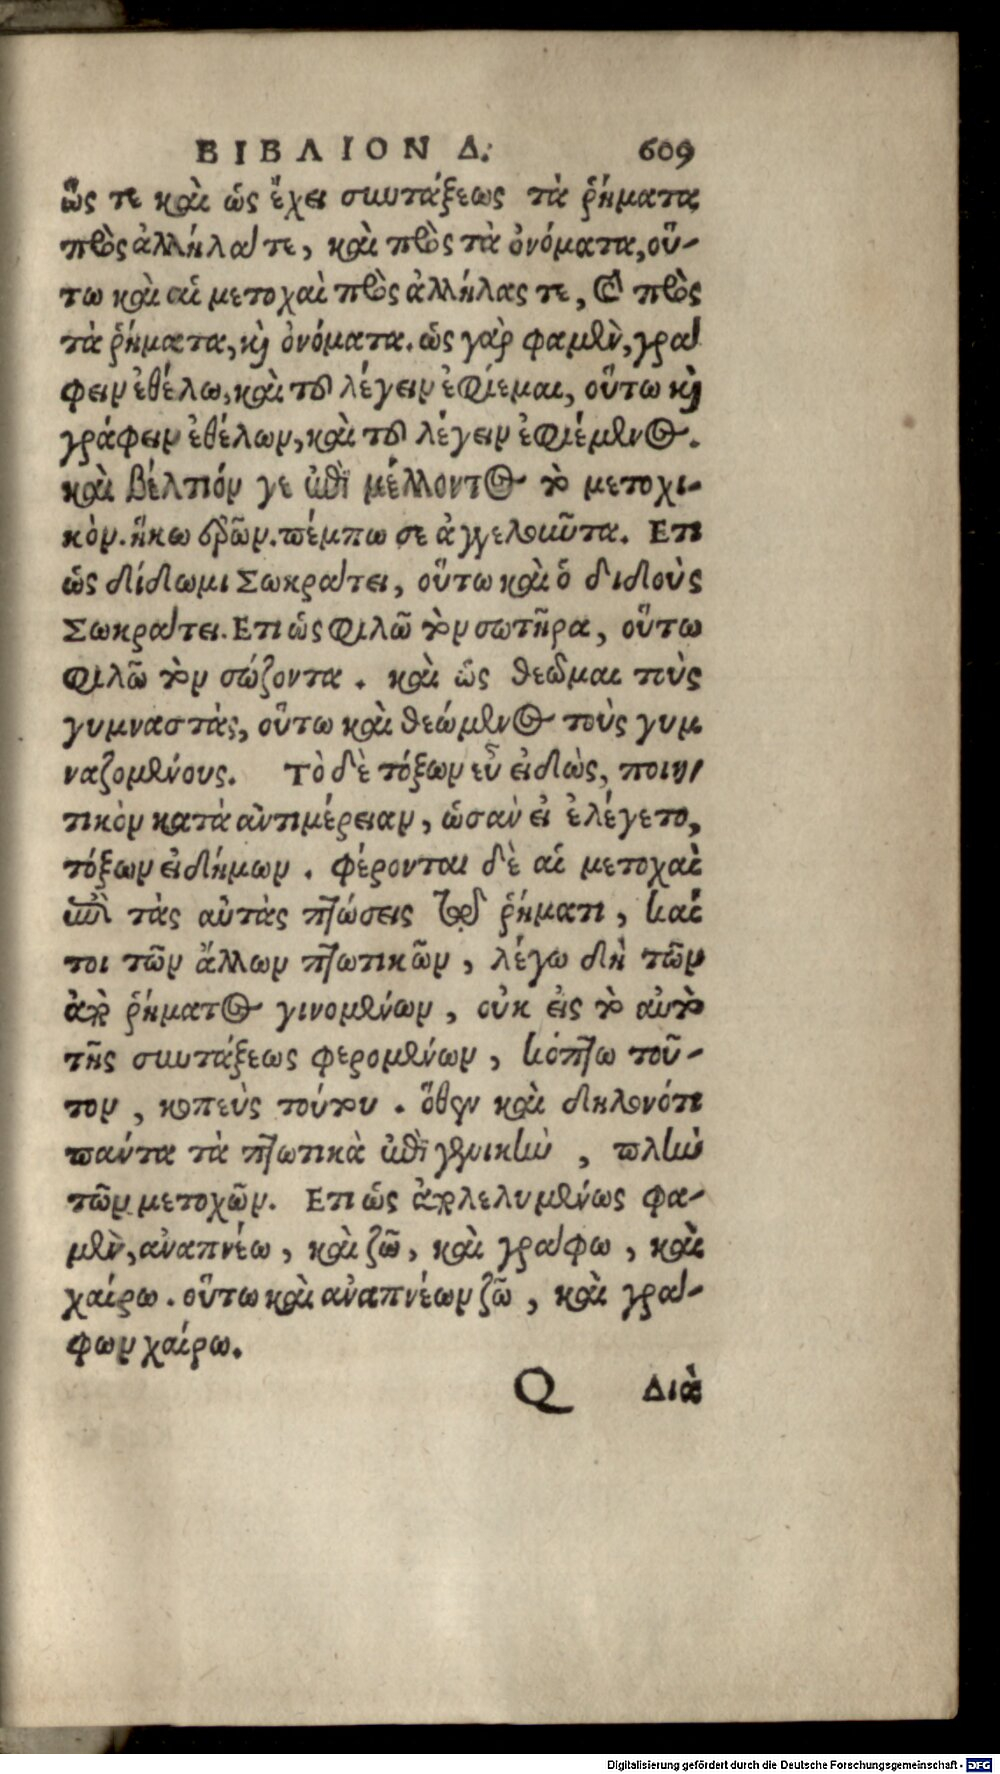 ΒΙΒΛΙΟΝ Δ. 609
ὥς τε καὶ ὡς ἔχει συντάξεως τὰ ῥήματα
πρὸς ἀλλήλα τε, καὶ πρὸς τὰ ὀνόματα, οὕ-
τω καὶ αἱ μετοχαὶ πρὸς ἀλλήλας τε, καὶ πρὸς
τὰ ῥήματα, καὶ ὀνόματα. ὡς γὰρ φαμὲν, γρά
φειν ἐθέλω, καὶ τοῦ λέγειν ἐφίεμαι, οὕτω καὶ
γράφειν ἐθέλων, καὶ τοῦ λέγειν ἐφιέμενος.
καὶ βέλτιόν γε ἐπὶ μέλλοντος τὸ μετοχι-
κὸν. ἥκω δρῶν. πέμπω σε ἀγγελοῦντα. Ετι
ὡς δίδωμι Σωκράτει, οὕτω καὶ ὁ διδοὺς
Σωκράτει. Ετι ὡς φιλῶ τὸν σωτῆρα, οὕτω
φιλῶ τὸν σώζοντα. καὶ ὡς θεῶμαι τοὺς
γυμναστὰς, οὕτω καὶ θεώμενος τοὺς γυμ
ναζομένους. Τὸ δὲ τόξων εὖ εἰδὼς, ποιη-
τικὸν κατὰ ἀντιμέρειαν, ὡσαν εἰ ἐλέγετο,
τόξων εἰδήμων. Φέρονται δὲ αἱ μετοχαὶ
ἐπὶ τὰς αὐτὰς πτώσεις τῷ ῥήματι, καί
τοι τῶν ἄλλων πτωτικῶν, λέγω δὴ τῶν
ἀπὸ ῥήματος γινομένων, οὐκ εἰς τὸ αὐτὸ
τῆς συντάξεως φερομένων, κόπτω τοῦ-
τον, κοπεὺς τούτου. ὅθεν καὶ δηλονότι
πάντα τὰ πτωτικὰ ἐπὶ γενικὴν, πλὴν
τῶν μετοχῶν. Ετι ὡς ἀπολελυμένως φα-
μὲν, ἀναπνέω, καὶ ζῶ, καὶ γράφω, καὶ
χαίρω. οὕτω καὶ ἀναπνέων ζῶ, καὶ γρά-
φων χαίρω.
Q Διὰ
Digitalisierung gefördert durch die Deutsche Forschungsgemeinschaft - DFG